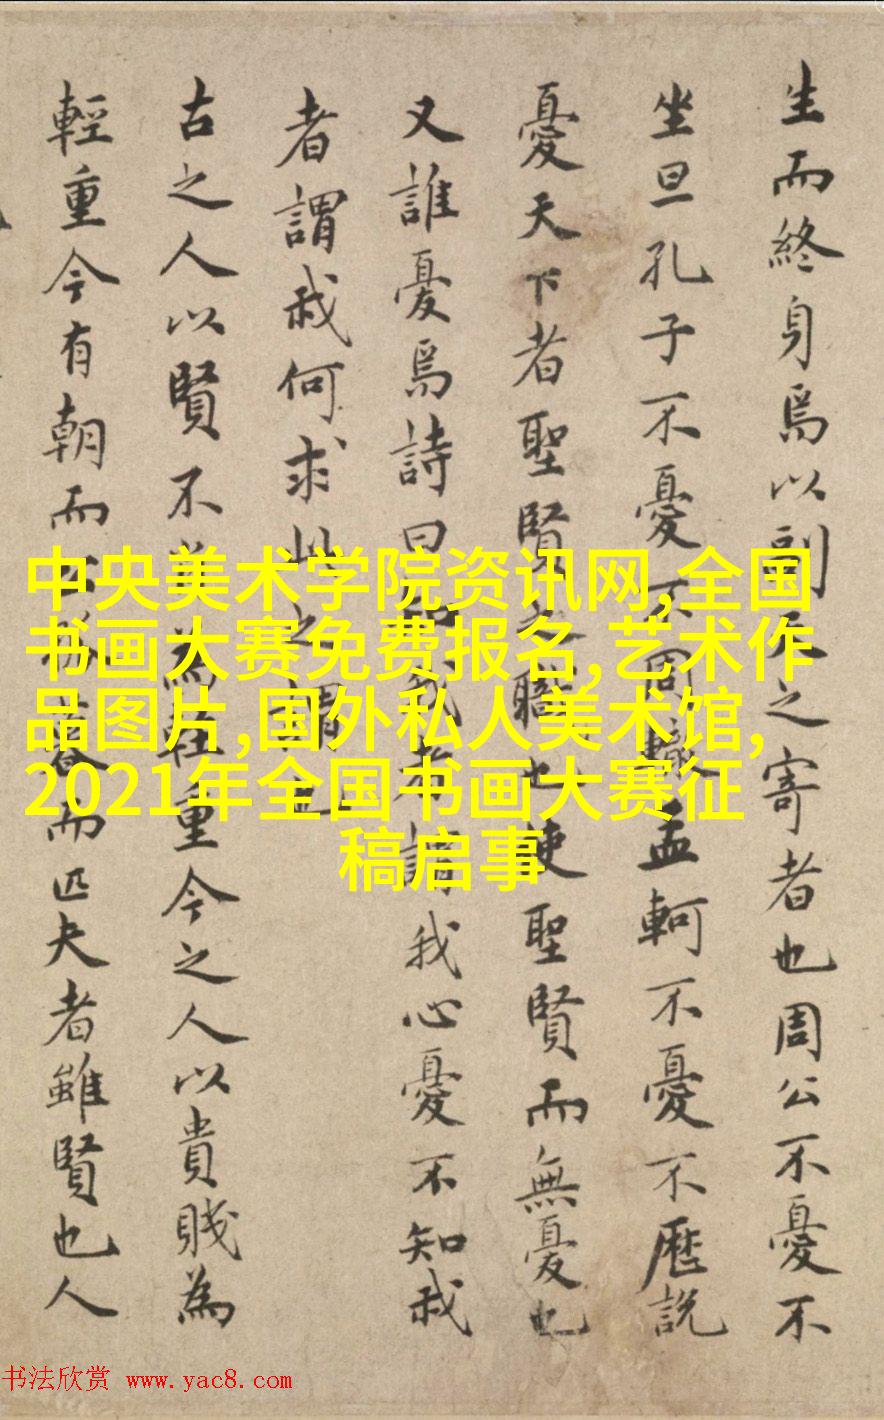 生而終身焉以副天之寄者也周公不憂不
坐旦孔子不憂不周轍孟軻不憂不歷説
憂天下者聖賢之職也使聖賢而無憂也
又誰憂焉詩曰知我者謂我心憂不知我
者謂我何求此之謂也
古之人以賢不肖為輕重今之人以貴賤為
輕重今有朝而公孫暮而匹夫者雖賢也人
中央美术学院资讯网,全国
书画大赛免费报名,艺术作
品图片,国外私人美术馆,
2021年全国书画大赛征
稿启事
书法欣赏 www.yac8.com